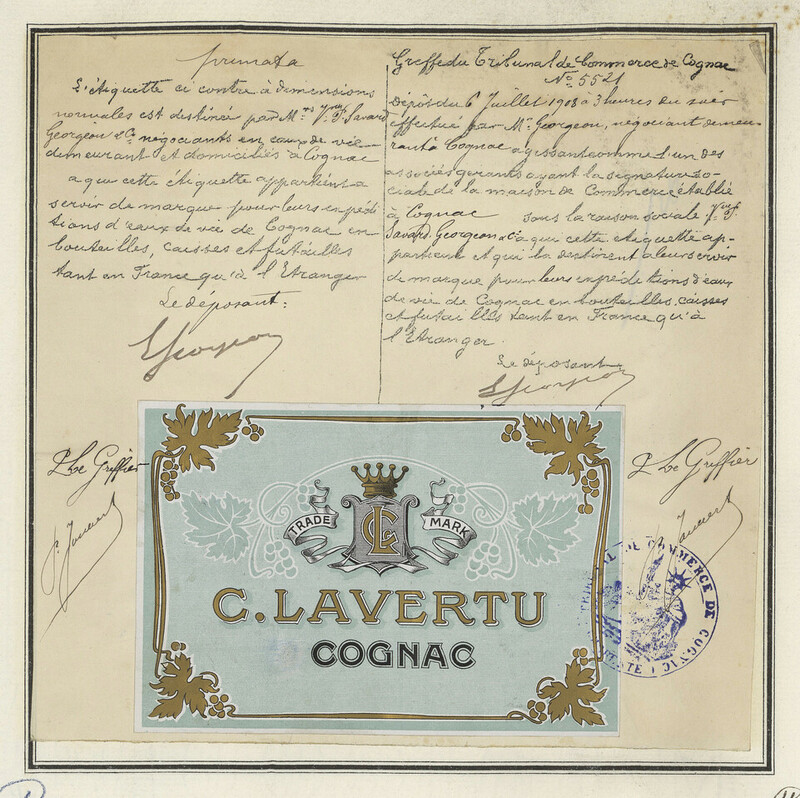 primata
L'étiquette ci contre à dimensions
normales est destinée par Mrs Yves F. Savard
Georgeon & Co négociants en eaux de vie
demeurant et domiciliés à Cognac
a qui cette étiquette appartient a
servir de marque pour leurs expédi
tions d'eaux de vie de Cognac en
bouteilles, caisses et futailles
tant en France qu'à l'Etranger
Le déposant:
EGeorgeon
Greffe du Tribunal de Commerce de Cognac
No. 5521
Dépôt du 6 Juillet 1908 à 3 heures du soir
effectué par Mr. Georgeon, négociant demeu
rant à Cognac agissant comme l'un des
associés gerants ayant la signature so-
ciale de la maison de Commerce établie
à Cognac sous la raison sociale Yves F.
Savard. Georgeon & Co a qui cette étiquette ap-
partient et qui la destinent a leur servir
de marque pour leurs expéditions d'eaux
de vie de Cognac en bouteilles, caisses
et futailles tant en France qu'à
l'Etranger.
Le déposant
EGeorgeon
P Le Greffier
P Le Greffier
TRADE MARK
CL
C. LAVERTU
COGNAC
TRIBUNAL DE COMMERCE DE COGNAC